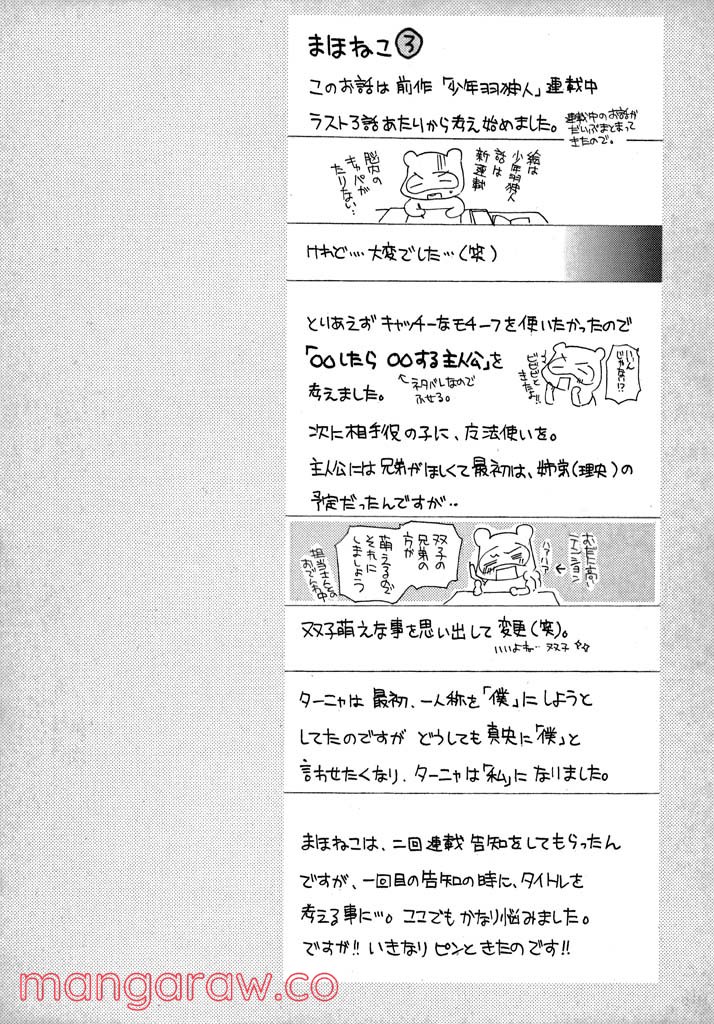 まほねこ③
このお話は前作「少年羽狩人」連載中
ラスト3話あたりから考え始めました。
連載中のお話が
だいぶまとまって
きたので。
絵は
少年羽狩人
話は
新連載
脳内の
キャパが
たりない…
けれど…大変でした…(笑)
とりあえずキャッチーなモチーフを使いたかったので
「○○したら○○する主人公」を
考えました。
←ネタバレなので
ふせる。
いんじゃない!?
ビビビと
きたよ!!
次に相手役の子に、魔法使いを。
主人公には兄弟がほしくて最初は、姉弟(理央)の
予定だったんですが…
むだに高
テンション
ハアハア
双子の
兄弟の
方が
萌えるので
それに
しましょう
担当さんと
おでんわ中
双子萌えな事を思い出して変更(笑)。
いいよね…双子☆☆
ターニャは最初、一人称を「僕」にしようと
してたのですがどうしても真央に「僕」と
言わせたくなり、ターニャは「私」になりました。
まほねこは、二回連載告知をしてもらったん
ですが、一回目の告知の時に、タイトルを
考える事に…。ココでもかなり悩みました。
ですが!!いきなりピンときたのです!!
mangaraw.co